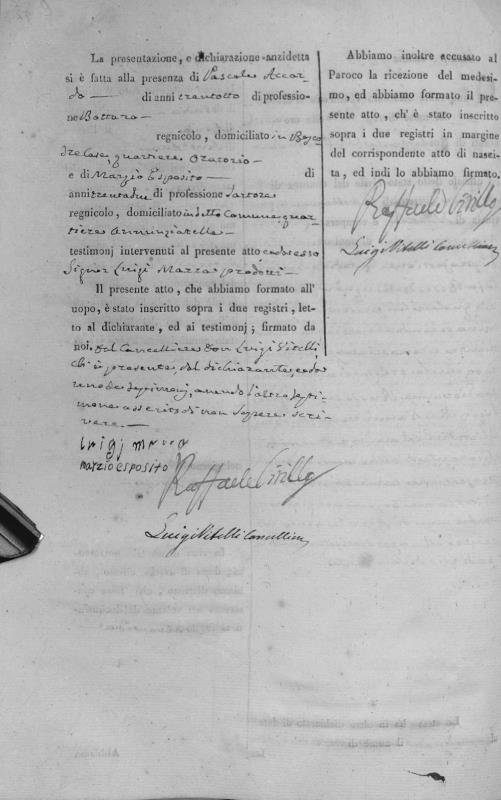 La presentazione, e dichiarazione anzidetta
si è fatta alla presenza di Pascale Accar-
do —
di anni trentotto di professio-
ne Bottaro —
regnicolo, domiciliato in Bosco
Trecase, quartiere Oratorio —
e di Marzio Esposito —
di
anni trentadue di professione Sartore
regnicolo, domiciliato in detto Comune, quar-
tiere Annunziatella —
testimonj intervenuti al presente atto ed da esso
Signor Luigi Mazza prodotti —
Il presente atto, che abbiamo formato all'
uopo, è stato inscritto sopra i due registri, let-
to al dichiarante, ed ai testimonj; firmato da
noi, dal Cancelliere Don Luigi Vitelli,
chi è presente, dal dichiarante, e da
uno de testimonj, avendo l'altro testi-
mone asserito di non sapere scri-
vere. —
Luigj
marzio esposito
Raffaele Cirillo
Luigi Vitelli Cancelliere
Abbiamo inoltre accusato al
Paroco la ricezione del medesi-
mo, ed abbiamo formato il pre-
sente atto, ch' è stato inscritto
sopra i due registri in margine
del corrispondente atto di nasci-
ta, ed indi lo abbiamo firmato.
Raffaele Cirillo
Luigi Vitelli Cancelliere